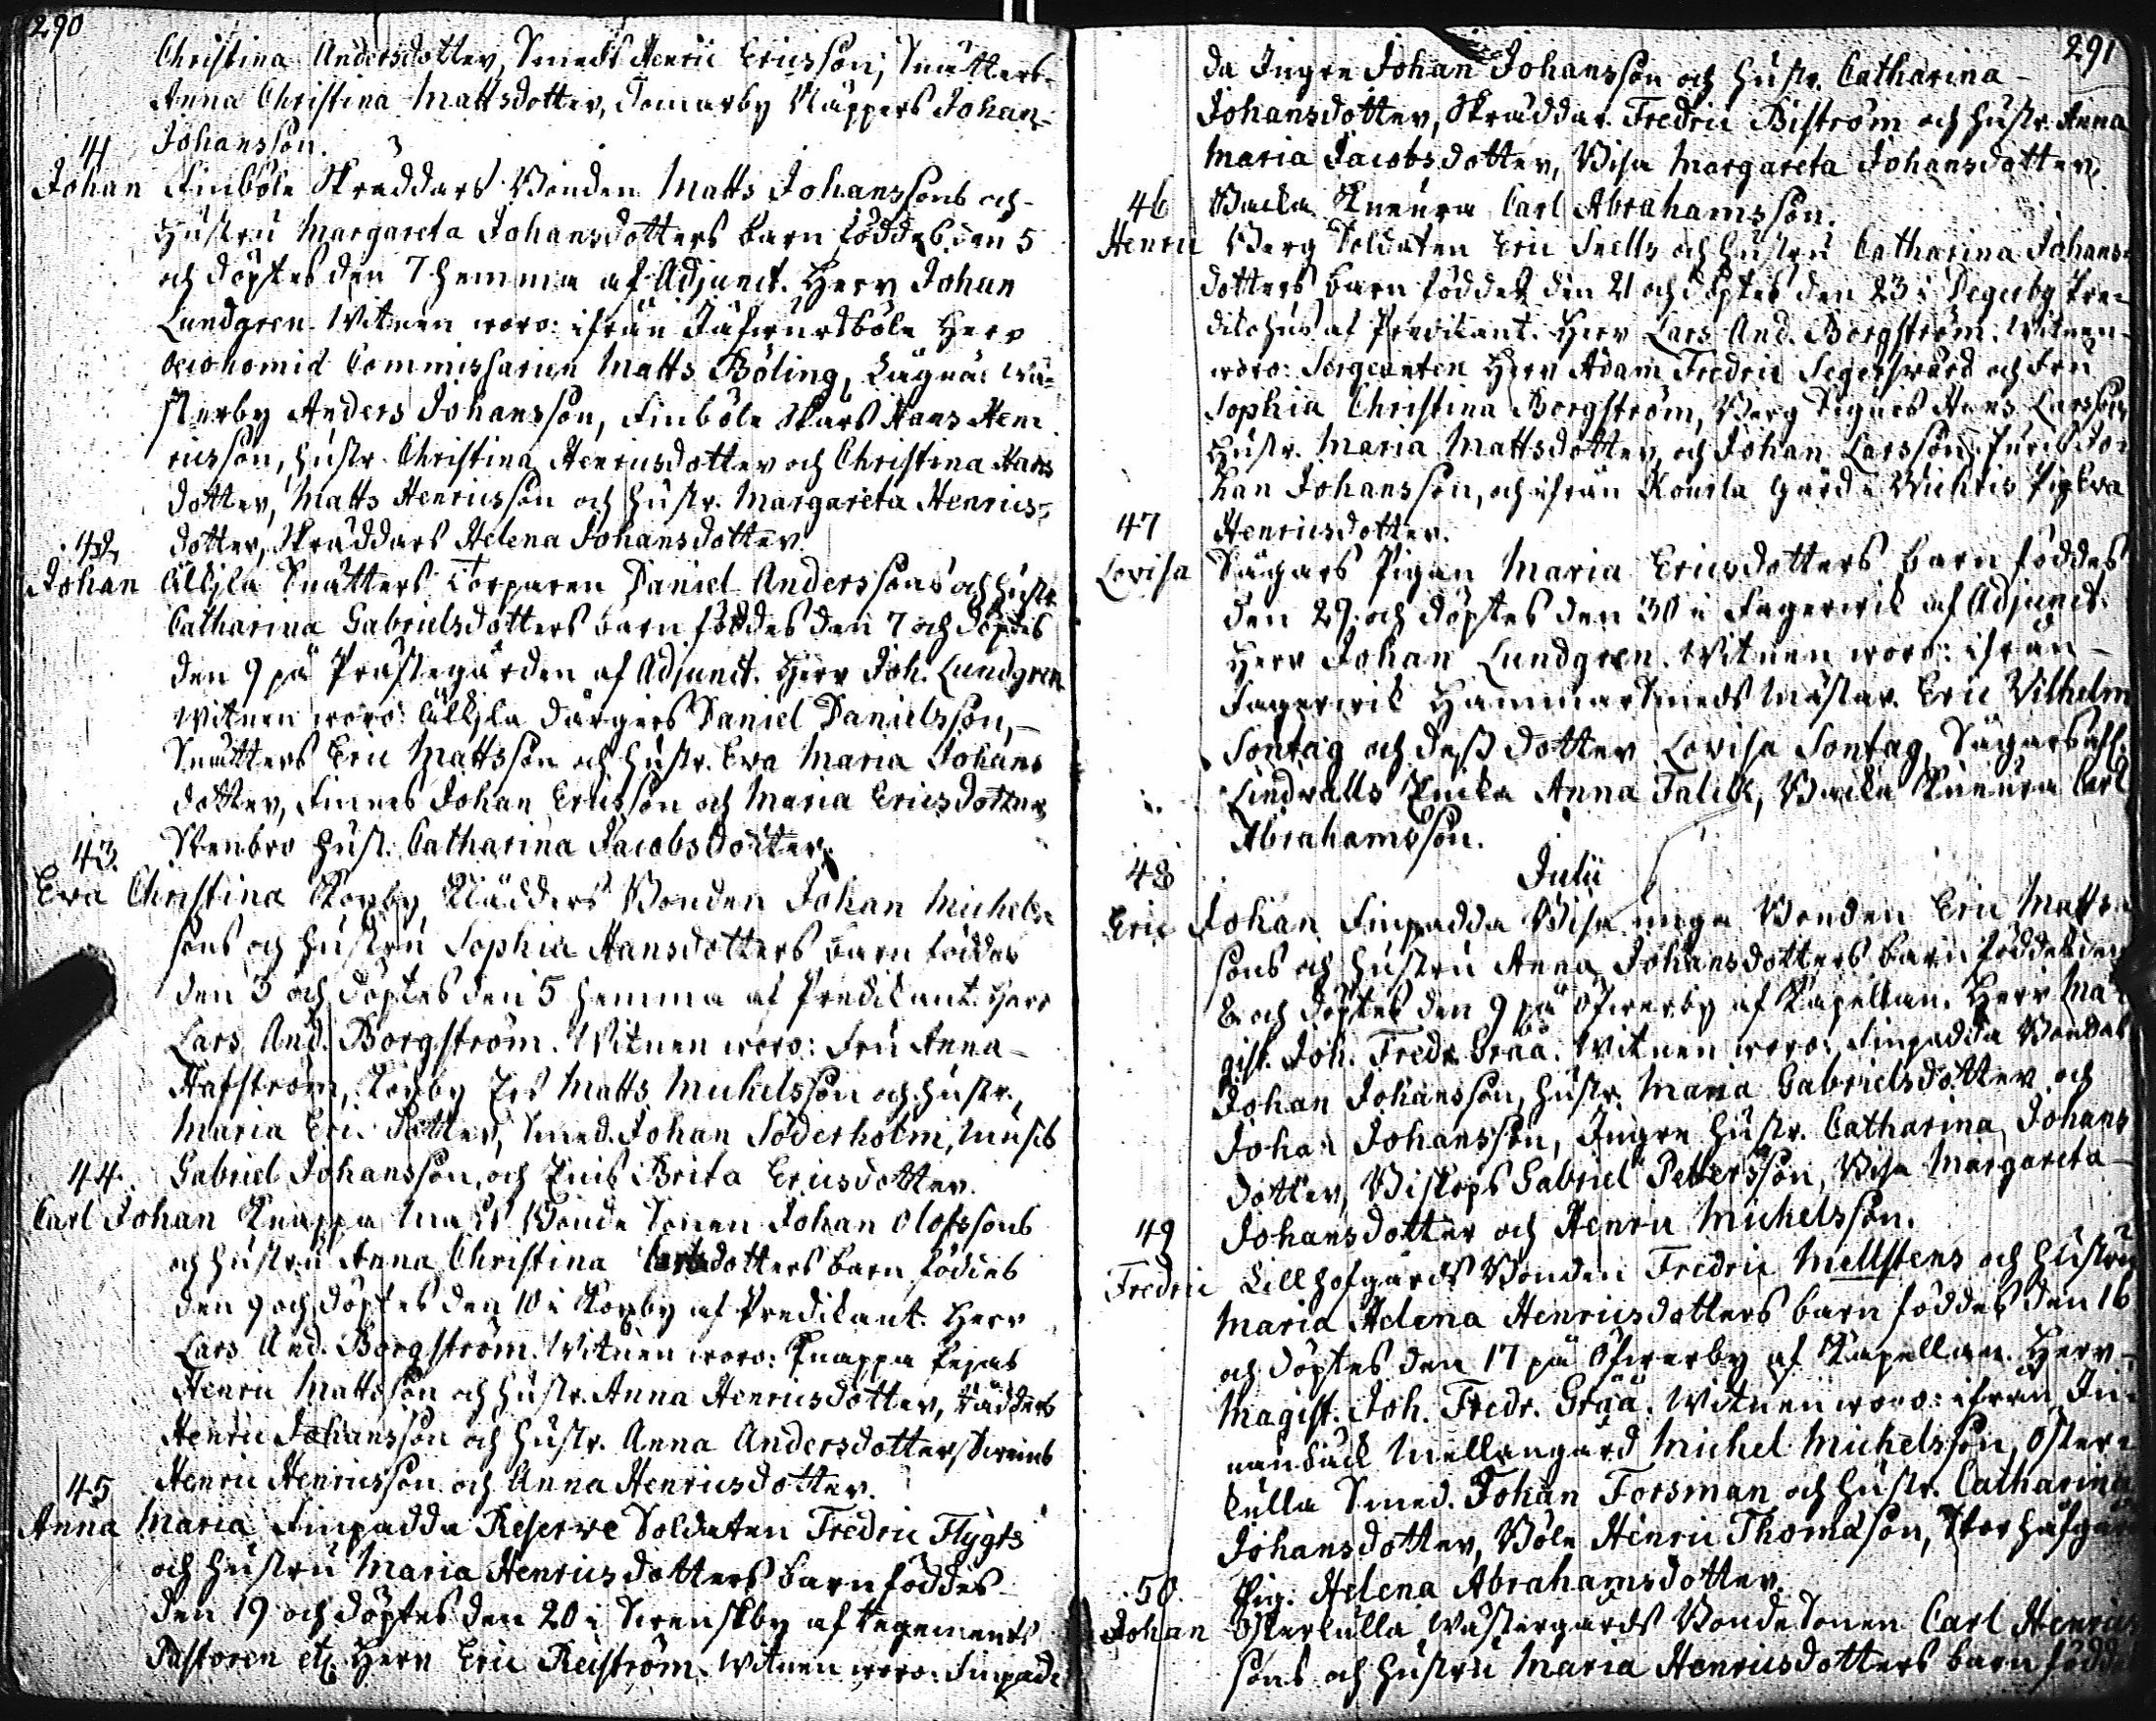 290
Christina Andersdotter, Smeds Henric Ericsson, Snutters
Anna Christina Mattsdotter, Domarby Näppers Johan
Johansson.
41
Johan Finböle Skräddars Bonden Matts Johanssons och
Hustru Margareta Johansdotters barn föddes den 5
och döptes den 7 hemma af Adjunct. Herr Johan
Lundgren. Witnen woro: ifrån Herr
Oeconomie Commissarien Matts Böling, Wä-
sterby Anders Johansson, Finböle Skars Hans Hen
ricsson, Hustr. Christina Henricsdotter och Christina Hans
dotter, Matts Henricsson och Hustr. Margareta Henrics-
dotter, Skräddars Helena Johansdotter.
42
Johan Snutters Torparen Daniel Anderssons och Hustr.
Catharina Gabrielsdotters barn föddes den 7 och döptes
den 9 på Prästegården af Adjunct. Herr Joh. Lundgren
Witnen woro: Daniel Danielsson,
Snutters Eric Mattsson och Hustr. Eva Maria Johans
dotter, Finnes Johan Ericsson och Maria Ericsdotter
Stenbro Hust. Catharina Jacobsdotter.
43.
Eva Christina Kopby Klädders Bonden Johan Michels-
sons och Hustru Sophia Hansdotters barn föddes
den 3 och döptes den 5 hemma af Predikant. Herr
Lars And. Borgström. Witnen woro: Fru Anna
Hafström, Kopby Matts Michelsson och Hustr.
Maria Erics dotter, Smed. Johan Söderholm,
Gabriel Johansson, och Brita Ericsdotter.
44.
Carl Johan Knappa Bonde Sonen Johan Olofssons
och Hustru Anna Christina Carlsdotters barn föddes
den 9 och döptes den 10 i Kopby af Predikant. Herr
Lars And. Borgström. Witnen woro: Knappa
Henric Mattsson och Hustr. Anna Henricsdotter, Klädders
Henric Johansson och Hustr. Anna Andersdotter,
Henric Henricsson och Anna Henricsdotter.
45
Anna Maria Finpadda Reserve Soldaten Fredric Flygts
och Hustru Maria Henricsdotters barn föddes
den 19 och döptes den 20 i Svenskby af Regements
Pastoren etc. Herr Eric Reiström. Witnen woro: Finpad-
291
da Ingre Johan Johansson och Hustr. Catharina
Johansdotter, Skräddar. Fredric Biström och Hustr. Anna
Maria Jacobsdotter, Bisa Margareta Johansdotter,
Backa Knuura Carl Abrahamsson.
46
Henric Berg Soldaten Eric Snells och Hustru Catharina Johans-
dotters barn föddes den 21 och döptes den 23 i Degerby Pre-
dikohus af Predikant. Herr Lars And. Borgström. Witnen
woro: Sergeanten Herr Adam Fredric Segersvärd och Fru
Sophia Christina Borgström, Berg Hans Larsson
Hustr. Maria Mattsdotter, och Johan Larsson, Jo-
han Johansson, och ifrån Gård i Wichtis Pig. Eva
Henricsdotter.
47
Lovisa Sågars Pigan Maria Ericsdotters barn föddes
den 29. och döptes den 30 i Fagervik af Adjunct.
Herr Johan Lundgren. Witnen woro: ifrån
Fagervik Hammarsmeds Mästar. Eric Vilhelm
Sontag och dess dotter Lovisa Sontag, Sågars
Lindvalls Enka Anna Falck, Backa Knuura Carl
Abrahamsson.
Julii
48
Eric Johan Finpadda Bisa unga Bonden Eric Matts-
sons och Hustru Anna Johansdotters barn föddes den
8 och döptes den 9 på Ofverby af Kapellan. Herr Ma-
gist. Joh. Fredr. Gråå. Witnen woro: Finpadda
Johan Johansson, Hustr. Maria Gabrielsdotter och
Johan Johansson, Ingre Hustr. Catharina Johans
dotter, Biskops Gabriel Pettersson, Bisa Margareta
Johansdotter och Henric Michelsson.
49
Fredric Lillhofgårds Bonden Fredric Mellstens och Hustru
Maria Helena Henricsdotters barn föddes den 16
och döptes den 17 på Ofverby af Kapellan. Herr
Magist. Joh. Fredr. Gråå. Witnen woro: ifrån In-
Mellangård Michel Michelsson, Öster-
kulla Smed. Johan Forsman och Hustr. Catharina
Johansdotter, Böle Henric Thomasson, Storhofgård
Pig. Helena Abrahamsdotter.
50.
Johan Österkulla Wästergårds Bonde Sonen Carl Henrics
sons och Hustru Maria Henricsdotters barn föddes